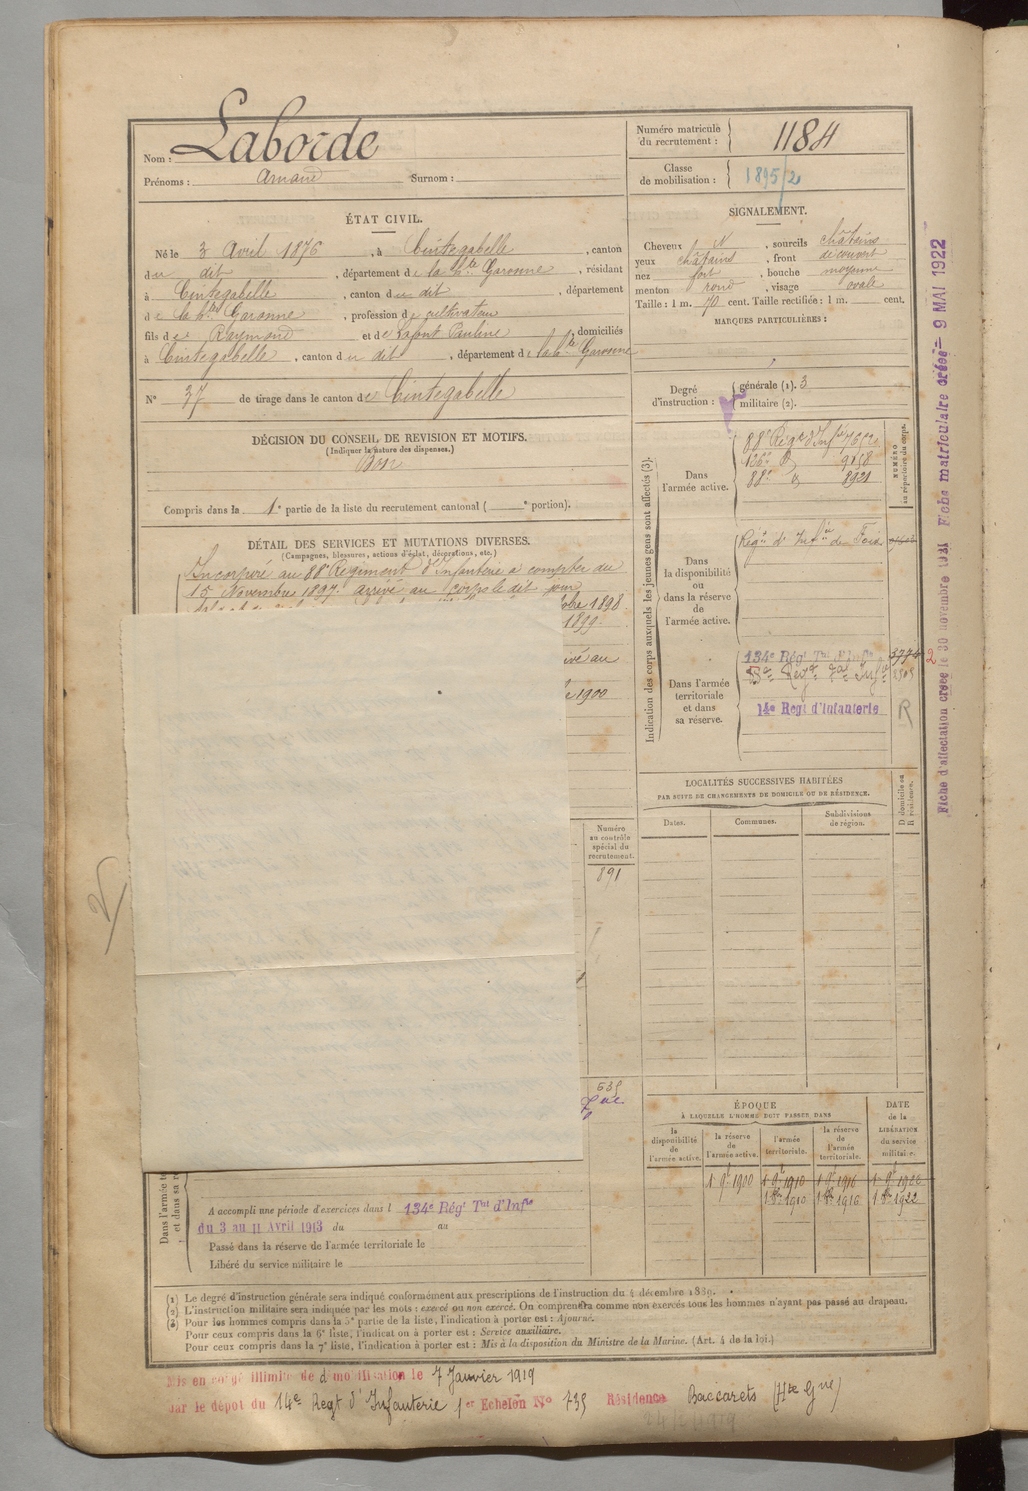 Nom : Laborde
Prénoms : Arnaud Surnom :
Numéro matricule du recrutement : 1184
Classe de mobilisation : 1895/2
ÉTAT CIVIL.
Né le 3 Avril 1876, à Cintegabelle, canton
du dit, département de la Hte Garonne, résidant
à Cintegabelle, canton du dit, département
de la Hte Garonne, profession de cultivateur
fils de Raymond et de Lafont Pauline domiciliés
à Cintegabelle, canton du dit, département de la Hte Garonne
N° 37 de tirage dans le canton de Cintegabelle
SIGNALEMENT.
Cheveux N, sourcils châtains
yeux châtains, front découvert
nez fort, bouche moyenne
menton rond, visage ovale
Taille : 1 m. 70 cent. Taille rectifiée : 1 m. cent.
MARQUES PARTICULIÈRES :
Degré d'instruction : générale (1). 3
militaire (2).
DÉCISION DU CONSEIL DE REVISION ET MOTIFS.
(Indiquer la nature des dispenses.)
Bon
Compris dans la 1e partie de la liste du recrutement cantonal ( e portion).
DÉTAIL DES SERVICES ET MUTATIONS DIVERSES.
(Campagnes, blessures, actions d'éclat, décorations, etc.)
Incorporé au 88e Régiment d'infanterie à compter du
15 Novembre 1897. arrivé au corps le dit jour
1898
1899
au
1900
Indication des corps auxquels les jeunes gens sont affectés (3).
NUMÉRO au répertoire du corps.
Dans l'armée active.
88e Régt d'Infie
9158
88e 8921
Dans la disponibilité ou dans la réserve de l'armée active.
Régt d'Infie de Foix
Dans l'armée territoriale et dans sa réserve.
134e Régt Tal d'Infie
14e Régt d'Infanterie R
LOCALITÉS SUCCESSIVES HABITÉES
PAR SUITE DE CHANGEMENTS DE DOMICILE OU DE RÉSIDENCE.
Dates. Communes. Subdivisions de région. D domicile ou R résidence.
Numéro au contrôle spécial du recrutement.
891
535
ÉPOQUE
À LAQUELLE L'HOMME DOIT PASSER DANS
DATE de la LIBÉRATION du service militaire.
la disponibilité de l'armée active. la réserve de l'armée active. l'armée territoriale. la réserve de l'armée territoriale.
1 9e 1900 1 9e 1910 1 9e 1916 1 9e 1922
1 8re 1910 1 8re 1916 1 8re 1922
Dans l'armée
et dans sa
A accompli une période d'exercices dans l 134e Régt Tal d'Infie
du 3 au 11 Avril 1913 du au
Passé dans la réserve de l'armée territoriale le
Libéré du service militaire le
(1) Le degré d'instruction générale sera indiqué conformément aux prescriptions de l'instruction du 4 décembre 1889.
(2) L'instruction militaire sera indiquée par les mots : exercé ou non exercé. On comprendra comme non exercés tous les hommes n'ayant pas passé au drapeau.
(3) Pour les hommes compris dans la 5e partie de la liste, l'indication à porter est : Ajourné.
Pour ceux compris dans la 6e liste, l'indication à porter est : Service auxiliaire.
Pour ceux compris dans la 7e liste, l'indication à porter est : Mis à la disposition du Ministre de la Marine. (Art. 4 de la loi.)
Mis en congé illimité de démobilisation le 7 Janvier 1919
par le dépôt du 14e Régt d'Infanterie 1er Echelon N° 735 Résidence Baccarets (Hte Gne)
24/2/1919
Fiche d'affectation créée le 30 novembre 1931 Fiche matriculaire créée = 9 MAI 1922